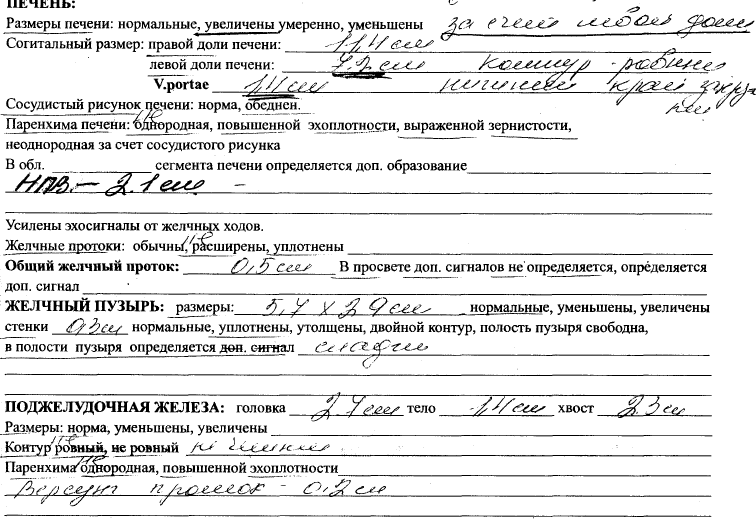 ПЕЧЕНЬ:
Размеры печени: нормальные, увеличены умеренно, уменьшены за счет левой доли
Согитальный размер: правой доли печени: 11,4 см
левой доли печени: 7.2 см контур - ровный
V.portae 1,4 см нижний край
Сосудистый рисунок печени: норма, обеднен.
Паренхима печени: однородная, повышенной эхоплотности, выраженной зернистости,
неоднородная за счет сосудистого рисунка
В обл. сегмента печени определяется доп. образование
НПВ - 2.1 см -
Усилены эхосигналы от желчных ходов.
Желчные протоки: обычны, не расширены, уплотнены
Общий желчный проток: 0,5 см В просвете доп. сигналов не определяется, определяется
доп. сигнал
ЖЕЛЧНЫЙ ПУЗЫРЬ: размеры: 5,7 х 2.9 см нормальные, уменьшены, увеличены
стенки 0,3 см нормальные, уплотнены, утолщены, двойной контур, полость пузыря свободна,
в полости пузыря определяется доп. сигнал
ПОДЖЕЛУДОЧНАЯ ЖЕЛЕЗА: головка 2.7 см тело 1,4 см хвост 2.3 см
Размеры: норма, уменьшены, увеличены
Контур ровный, не ровный
Паренхима не однородная, повышенной эхоплотности
Версунг проток - 0,2 см